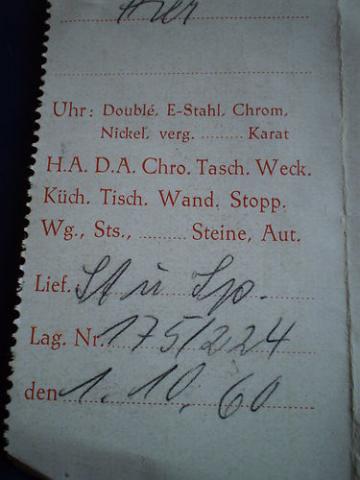 Hier
Uhr: Doublé, E-Stahl, Chrom,
Nickel, verg. ......... Karat
H.A. D.A. Chro. Tasch. Weck.
Küch. Tisch. Wand. Stopp.
Wg., Sts., .......... Steine, Aut.
Lief. St u Sp.
Lag. Nr. 175/224
den 1. 10. 60